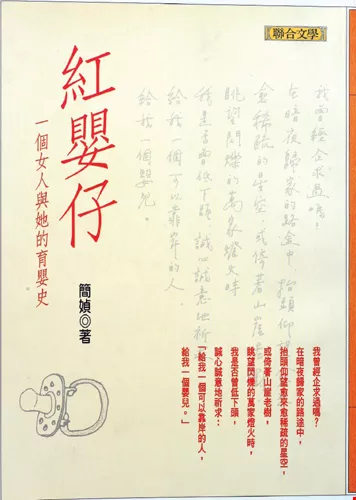 聯合文學
紅嬰仔
一個女人與她的育嬰史
簡媜◎著
我曾經企求過嗎?
在暗夜歸家的路途中,抬頭仰望
愈稀疏的星空,或倚著山崖
眺望閃爍的萬家燈火時
我是否曾低下頭,誠心誠意地祈
給我一個可以靠岸的人,
給我一個嬰兒。
我曾經企求過嗎?
在暗夜歸家的路途中,
抬頭仰望愈來愈稀疏的星空,
或倚著山崖老樹,
眺望閃爍的萬家燈火時,
我是否曾低下頭,
誠心誠意地祈求:
「給我一個可以靠岸的人,
給我一個嬰兒。」